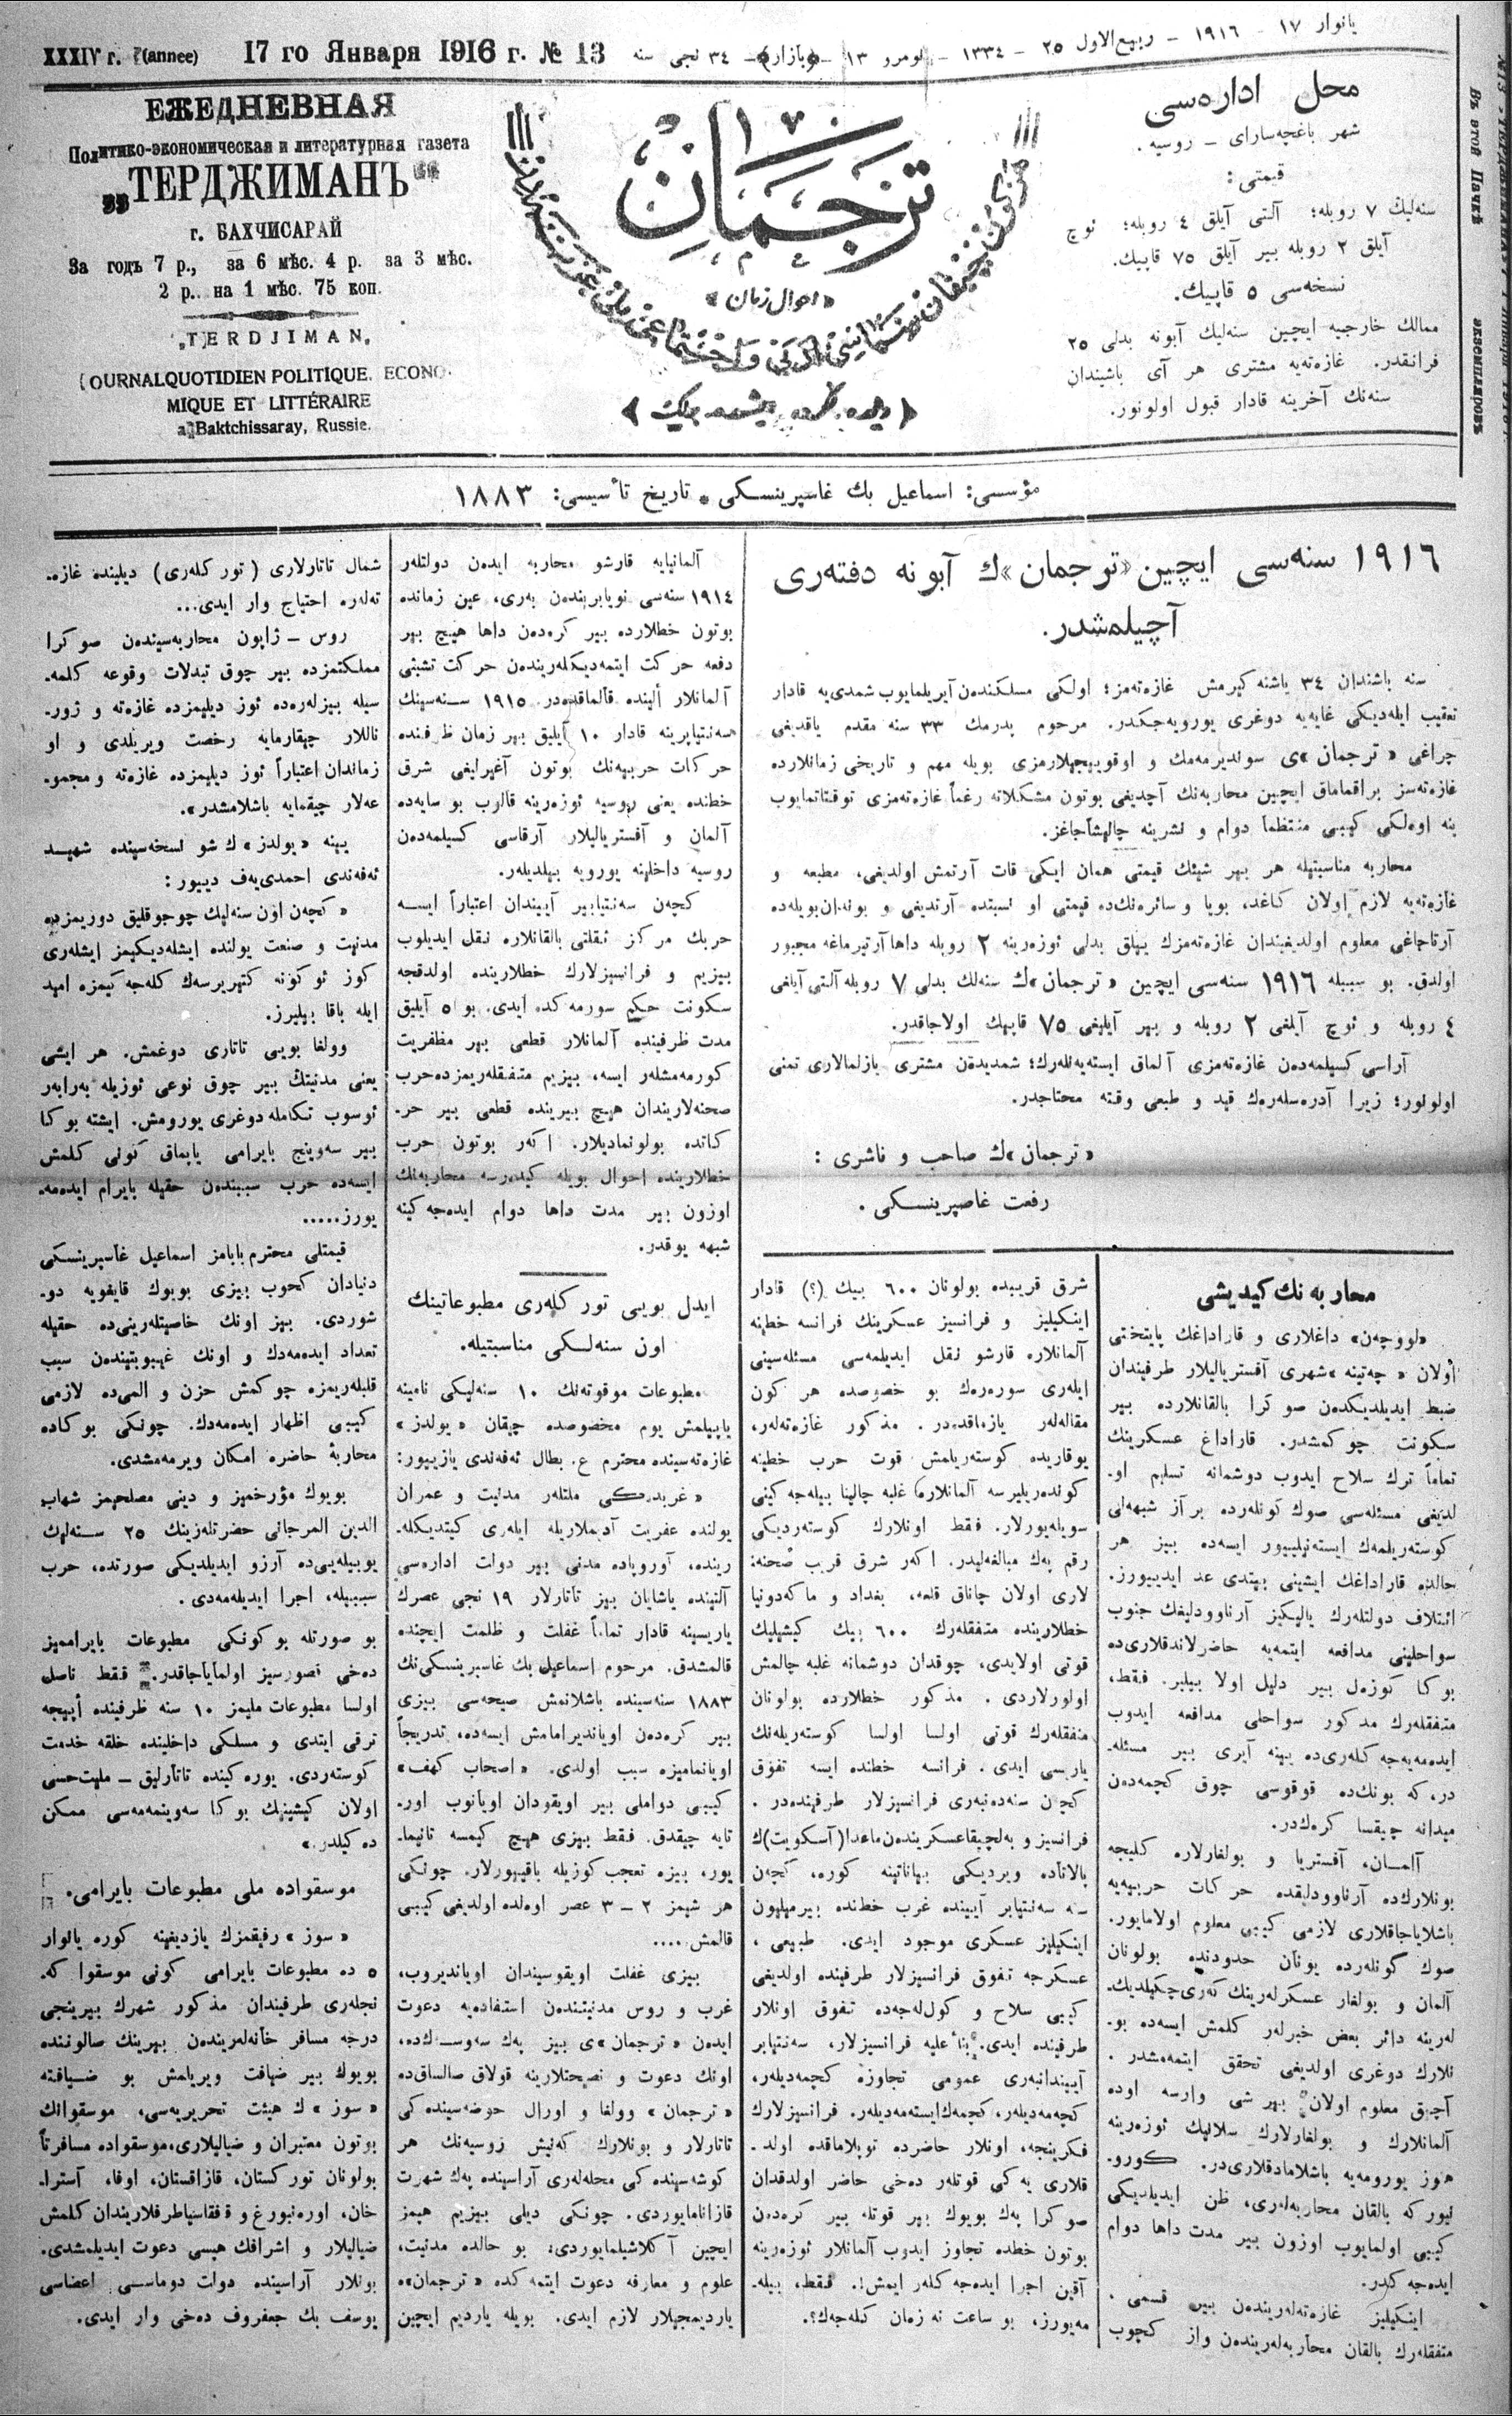 يانوار ١٧ - ١٩١٦ - ربيع‌الاول ٢٥ - ١٣٣٤ - نومرو ١٣ - «بازار» - ٣٤ نجى سنه
17 го Января 1916 г. № 13
XXXIV г. (annee)
ЕЖЕДНЕВНАЯ
Политико-экономическая и литературная газета
„ТЕРДЖИМАНЪ“
г. БАХЧИСАРАЙ
За годъ 7 р., за 6 мѣс. 4 р. за 3 мѣс.
2 р.. на 1 мѣс. 75 коп.
„TERDJIMAN„
OURNALQUOTIDIEN POLITIQUE. ECONO-
MIQUE ET LITTÉRAIRE
a Baktchissaray, Russie.
ترجمان
«احوال زمان»
«ديلده، فكرده، ايشده بيرلك»
محل اداره‌سى
شهر باغچه‌ساراى – روسيه.
قيمتى:
سنه‌ليك ٧ روبله؛ آلتى آيلق ٤ روبله؛ ئوچ
آيلق ٢ روبله بير آيلق ٧٥ قاپيك.
نسخه‌سى ٥ قاپيك.
ممالك خارجيه ايچين سنه‌ليك آبونه بدلى ٢٥
فرانقدر. غازه‌ته‌يه مشترى هر آى باشيندان
سنه‌نك آخرينه قادار قبول اولونور.
Въ этой Пачкѣ экземпляровъ
مؤسسى: اسماعيل بك غاسپرينسكى * تاريخ تأسيسى: ١٨٨٣
١٩١٦ سنه‌سى ايچين «ترجمان»ك آبونه دفته‌رى
آچيلمشدر.
سنه باشندان ٣٤ ياشنه كيرمش غازه‌ته‌مز؛ اولكى مسلكندن آيريلمايوب شمدى‌يه قادار
تعقيب ايله‌ديكى غايه‌يه دوغرى يورويه‌جكدر. مرحوم پدرمك ٣٣ سنه مقدم ياقديغى
چراغى «ترجمان»ى سونديرمه‌مك و اوقويیجیلارمزى بويله مهم و تاريخى زمانلارده
غازه‌ته‌سز براقماماق ايچين محاربه‌نك آچديغى بوتون مشكلاته رغماً غازه‌ته‌مزى توقتاتمايوب
ينه اوه‌لكى كيبى منتظماً دوام و نشرينه چاليشاجاغز.
محاربه مناسبتيله هر بير شيئك قيمتى همان ايكى قات آرتمش اولديغى، مطبعه و
غازه‌ته‌يه لازم اولان كاغد، بويا و سائره‌نك‌ده قيمتى او نسبتده آرتديغى و بوندان‌بويله‌ده
آرتاجاغى معلوم اولديغيندان غازه‌ته‌مزك ييلق بدلى ئوزه‌رينه ٢ روبله داها آرتيرماغه مجبور
اولدق. بو سببله ١٩١٦ سنه‌سى ايچين «ترجمان»ك سنه‌لك بدلى ٧ روبله آلتى آيلغى
٤ روبله و ئوچ آيلغى ٢ روبله و بير آيليغى ٧٥ قاپيك اولاجاقدر.
آراسى كسيلمه‌دن غازه‌ته‌مزى آلماق ايسته‌يه‌نله‌رك؛ شمديدن مشترى يازلمالارى تمنى
اولونور؛ زيرا آدره‌سله‌رك قيد و طبعى وقته محتاجدر.
«ترجمان»ك صاحب و ناشرى:
رفعت غاصپرينسكى.
محاربه‌نك كيديشى
«لووچه‌ن» داغلارى و قاراداغك پايتختى
اولان «چه‌تينه» شهرى آفستريالیلار طرفيندان
ضبط ايديلديكدن صوكرا بالقانلارده بير
سكونت چوكمشدر. قاراداغ عسكرينك
تماماً ترك سلاح ايدوب دوشمانه تسليم او-
لديغى مسئله‌سى صوك كونله‌رده بر آز شبهه‌لى
حالده قاراداغك ايشينى بيتدى عد ايدييورز.
ائتلاف دولتله‌رك يالیكيز آرناوودليغك جنوب
سواحلينى مدافعه ايتمه‌يه حاضرلاندقلارى‌ده
بوكا كوزه‌ل بير دليل اولا بيلير. فقط،
متفقله‌رك مذكور سواحلى مدافعه ايدوب
ايده‌مه‌يه‌جه‌كله‌رى‌ده يينه آيرى بير مسئله-
در، كه بونك‌ده قوقوسى چوق كچمه‌دن
ميدانه چيقسا كره‌كدر.
آلمان، آفستريا و بولغارلاره كلينجه
بونلارك‌ده آرناوودلیقده حركات حربيه‌يه
باشلاياجاقلارى لازمى كيبى معلوم اولامايور.
صوك گونله‌رده يونان حدودنده بولونان
آلمان و بولغار عسكرله‌رينك گه‌رى چكيلديك-
له‌رينه دائر بعض خبرله‌ر كلمش ايسه‌ده بو-
نلارك دوغرى اولديغى تحقق ايتمه‌مشدر.
آچيق معلوم اولان بير شى وارسه اوده
آلمانلارك و بولغارلارك سلانيك ئوزه‌رينه
هنوز يورومه‌يه باشلامادقلارى‌در. كورو-
نيور كه بالقان محاربه‌له‌رى، ظن ايديلديكى
كيبى اولمايوب اوزون بير مدت داها دوام
ايده‌جه‌كدر.
اينكيليز غازه‌ته‌له‌ريندن بير قسمى،
متفقله‌رك بالقان محاربه‌له‌ريندن واز كچوب
شرق قريبده بولونان ٦٠٠ بيك (؟) قادار
اينكيليز و فرانسيز عسكرينك فرانسه خطينه
آلمانلاره قارشو نقل ايديلمه‌سى مسئله‌سينى
ايله‌رى سوره‌رك بو خصوصده هر كون
مقاله‌له‌ر يازماقده‌در. مذكور غازه‌ته‌له‌ر،
يوقاريده كوسته‌ريلمش قوت حرب خطينه
كونده‌ريليرسه آلمانلاره غلبه چالينا بيله‌جه‌كينى
سويله‌يورلار. فقط اونلارك كوسته‌رديكى
رقم په‌ك مبالغه‌ليدر. اكه‌ر شرق قريب صحنه-
لارى اولان چاناق قلعه، بغداد و ماكه‌دونيا
خطلارينده متفقله‌رك ٦٠٠ بيك كيشيلك
قوتى اولايدى، چوقدان دوشمانه غلبه چالمش
اولورلاردى. مذكور خطلارده بولونان
متفقله‌رك قوتى اولسا اولسا كوسته‌ريله‌نك
ياريسى ايدى. فرانسه خطنده ايسه تفوق
كچن سنه‌ده‌نبه‌رى فرانسيزلار طرفينده‌در.
فرانسيز و به‌لچيقا عسكريندن‌ماعدا (آسكويت)ك
پالاتاده ويرديكى بياناتينه كوره، كچه‌ن
سنه سه‌نتيابر آيينده غرب خطنده بيرميليون
اينكيليز عسكرى موجود ايدى. طبيعى،
عسكرجه تفوق فرانسيزلار طرفينده اولديغى
كيبى سلاح و كول‌له‌جه‌ده تفوق اونلار
طرفينده ايدى. بناً عليه فرانسيزلار، سه‌نتيابر
آييندانبه‌رى عمومى تجاوزه كچمه‌ديله‌ر،
كچه‌مه‌ديله‌ر، كچمه‌ك‌ايسته‌مه‌ديله‌ر. فرانسيزلارك
فكرينجه، اونلار حاضرده توپلاماقده اولد-
قلارى يه‌كى قوتله‌ر ده‌خى حاضر اولدقدان
صوكرا په‌ك بويوك بير قوتله بير كره‌دن
بوتون خطده تجاوز ايدوب آلمانلار ئوزه‌رينه
آقين اجرا ايده‌جه‌كله‌ر ايمش!. فقط، بيله-
مه‌يورز، بو ساعت نه زمان كله‌جه‌ك؟.
آلمانيايه قارشو محاربه ايدن دولتله‌ر
١٩١٤ سنه‌سى نويابريندن به‌رى، عين زمانده
بوتون خطلارده بير كره‌دن داها هيچ بير
دفعه حركت ايتمه‌ديكله‌ريندن حركت تشبثى
آلمانلار ألينده قالماقده‌در. ١٩١٥ سنه‌سينك
سه‌نتيابرينه قادار ١٠ آيليق بير زمان ظرفنده
حركات حربيه‌نك بوتون آغيرليغى شرق
خطنده يعنى روسيه ئوزه‌رينه قالوب بو سايه‌ده
آلمان و آفستريالیلار آرقاسى كسيلمه‌دن
روسيه داخلينه يورويه بيلديله‌ر.
كچه‌ن سه‌نتيابر آييندان اعتباراً ايسه
حربك مركز ثقلتى بالقانلاره نقل ايديلوب
بيزيم و فرانسيزلارك خطلارينده اولدقجه
سكونت حكم سورمه‌كده ايدى. بو ٥ آيليق
مدت ظرفينده آلمانلار قطعى بير مظفريت
كورمه‌مشله‌ر ايسه، بيزيم متفقله‌ريمزده‌حرب
صحنه‌لاريندان هيچ بيرينده قطعى بير حر-
كاتده بولونماديلار. اكه‌ر بوتون حرب
خطلارينده احوال بويله كيده‌رسه محاربه‌نك
اوزون بير مدت داها دوام ايده‌جه‌كينه
شبهه يوقدر.
ايدل بويى توركله‌رى مطبوعاتينك
اون سنه‌لكى مناسبتيله.
مطبوعات موقوته‌نك ١٠ سنه‌ليكى نامينه
ياپيلمش يوم مخصوصده چيقان «يولدز»
غازه‌ته‌سينده محترم ع. بطال ئه‌فه‌ندى يازييور:
«غربده‌كى ملتله‌ر مدنيت و عمران
يولنده عفريت آديملاريله ايله‌رى كيتديكله-
رينده، آوروپاده مدنى بير دولت اداره‌سى
آلتينده ياشايان بيز تاتارلار ١٩ نجى عصرك
ياريسينه قادار تماماً غفلت و ظلمت ايچنده
قالمشدق. مرحوم اسماعيل بك غاسپرينسكى‌نك
١٨٨٣ سنه‌سينده باشلانمش صيحه‌سى بيزى
بير كره‌دن اوياندیرامامش ايسه‌ده، تدريجاً
اويانماميزه سبب اولدى. «اصحاب كهف»
كيبى دواملى بير اويقودان اويانوب اور-
تايه چيقدق. فقط بيزى هيچ كيمسه تانيما-
يور، بيزه تعجب كوزيله باقييورلار. چونكى
هر شيمز ٢ – ٣ عصر اوه‌لده اولديغى كيبى
قالمش....
بيزى غفلت اويقوسيندان اوياندیروب،
غرب و روس مدنيتندن استفاده‌يه دعوت
ايدن «ترجمان»ى بيز په‌ك سه‌وسه‌ك‌ده،
اونك دعوت و نصيحتلارينه قولاق صالساق‌ده
«ترجمان» وولغا و اورال حوضه‌سينده كى
تاتارلار و بونلارك كه‌نيش روسيه‌نك هر
كوشه‌سينده كى محله‌له‌رى آراسينده په‌ك شهرت
قازانامايوردى. چونكى ديلى بيزيم هيمز
ايچين آكلاشيلمايوردى؛ بو حالده مدنيت،
علوم و معارفه دعوت ايتمه‌كده «ترجمان»ه
يارديمجیلار لازم ايدى. بويله يارديم ايچين
شمال تاتارلارى (توركله‌رى) ديلينده غازه-
ته‌له‌ره احتياج وار ايدى...
روس – ژاپون محاربه‌سيندن صوكرا
مملكتمزده بير چوق تبدلات وقوعه كلمه-
سيله بيزله‌ره‌ده ئوز ديليمزده غازه‌ته و ژور-
ناللار چيقارمايه رخصت ويريلدى و او
زماندان اعتباراً ئوز ديليمزده غازه‌ته و مجمو-
عه‌لار چيقمايه باشلامشدر».
يينه «يولدز»ك شو نسخه‌سينده شهيد
ئه‌فه‌ندى احمدى‌يه‌ف دييور:
«كچه‌ن اون سنه‌ليك چوجوقليق دوريمزده
مدنيت و صنعت يولنده ايشله‌ديكيمز ايشله‌رى
كوز ئوكونه كتيريرسه‌ك كله‌جه‌كيمزه اميد
ايله باقا بيليرز.
وولغا بويى تاتارى دوغمش. هر ايشى
يعنى مدنيتك بير چوق نوعى ئوزيله به‌رابه‌ر
ئوسوب تكامله دوغرى يورومش. ايشته بوكا
بير سه‌وينج بايرامى ياپماق كونى كلمش
ايسه‌ده حرب سببندن حقيله بايرام ايده‌مه-
يورز.....
قيمتلى محترم بابامز اسماعيل غاسپرينسكى
دنيادان كچوب بيزى بويوك قايغويه دو-
شوردى. بيز اونك خاصيتله‌رينى‌ده حقيله
تعداد ايده‌مه‌دك و اونك غيبوبتيندن سبب
قلبله‌ريمزه چوكمش حزن و المى‌ده لازمى
كيبى اظهار ايده‌مه‌دك. چونكى بوكاده
محاربۀ حاضره امكان ويرمه‌مشدى.
بويوك مؤرخميز و دينى مصلحيمز شهاب
الدين المرجانى حضرتله‌رينك ٢٥ سنه‌ليك
يوبيله‌يى‌ده آرزو ايديلديكى صورتده، حرب
سببيله، اجرا ايديله‌مه‌دى.
بو صورتله بوكونكى مطبوعات بايراميمز
ده‌خى قصورسيز اولماياجاقدر. فقط ناصل
اولسا مطبوعات مليمز ١٠ سنه ظرفينده أپيجه
ترقى ايتدى و مسلكى داخلينده خلقه خدمت
كوسته‌ردى. يوره‌كينده تاتارليق – مليت‌حسى
اولان كيشينك بوكا سه‌وينمه‌مه‌سى ممكن
ده‌كيلدر.»
موسقواده ملى مطبوعات بايرامى.
«سوز» رفيقمزك يازديغينه كوره يانوار
٥ ده مطبوعات بايرامى كونى موسقوا كه-
نجله‌رى طرفيندان مذكور شهرك بيرينجى
درجه مسافر خانه‌له‌ريندن بيرينك صالوننده
بويوك بير ضيافت ويريلمش بو ضيافته
«سوز»ك هيئت تحريريه‌سى، موسقوانك
بوتون معتبران و ضياليلارى، موسقواده مسافرتاً
بولونان توركستان، قازاقستان، اوفا، آسترا-
خان، اوره‌نبورغ و قفقاسيا طرفلاريندان كلمش
ضياليلار و اشرافك هيسى دعوت ايديلمشدى.
بونلار آراسينده دولت دوماسى اعضاسى
يوسف بك جعفروف ده‌خى وار ايدى.